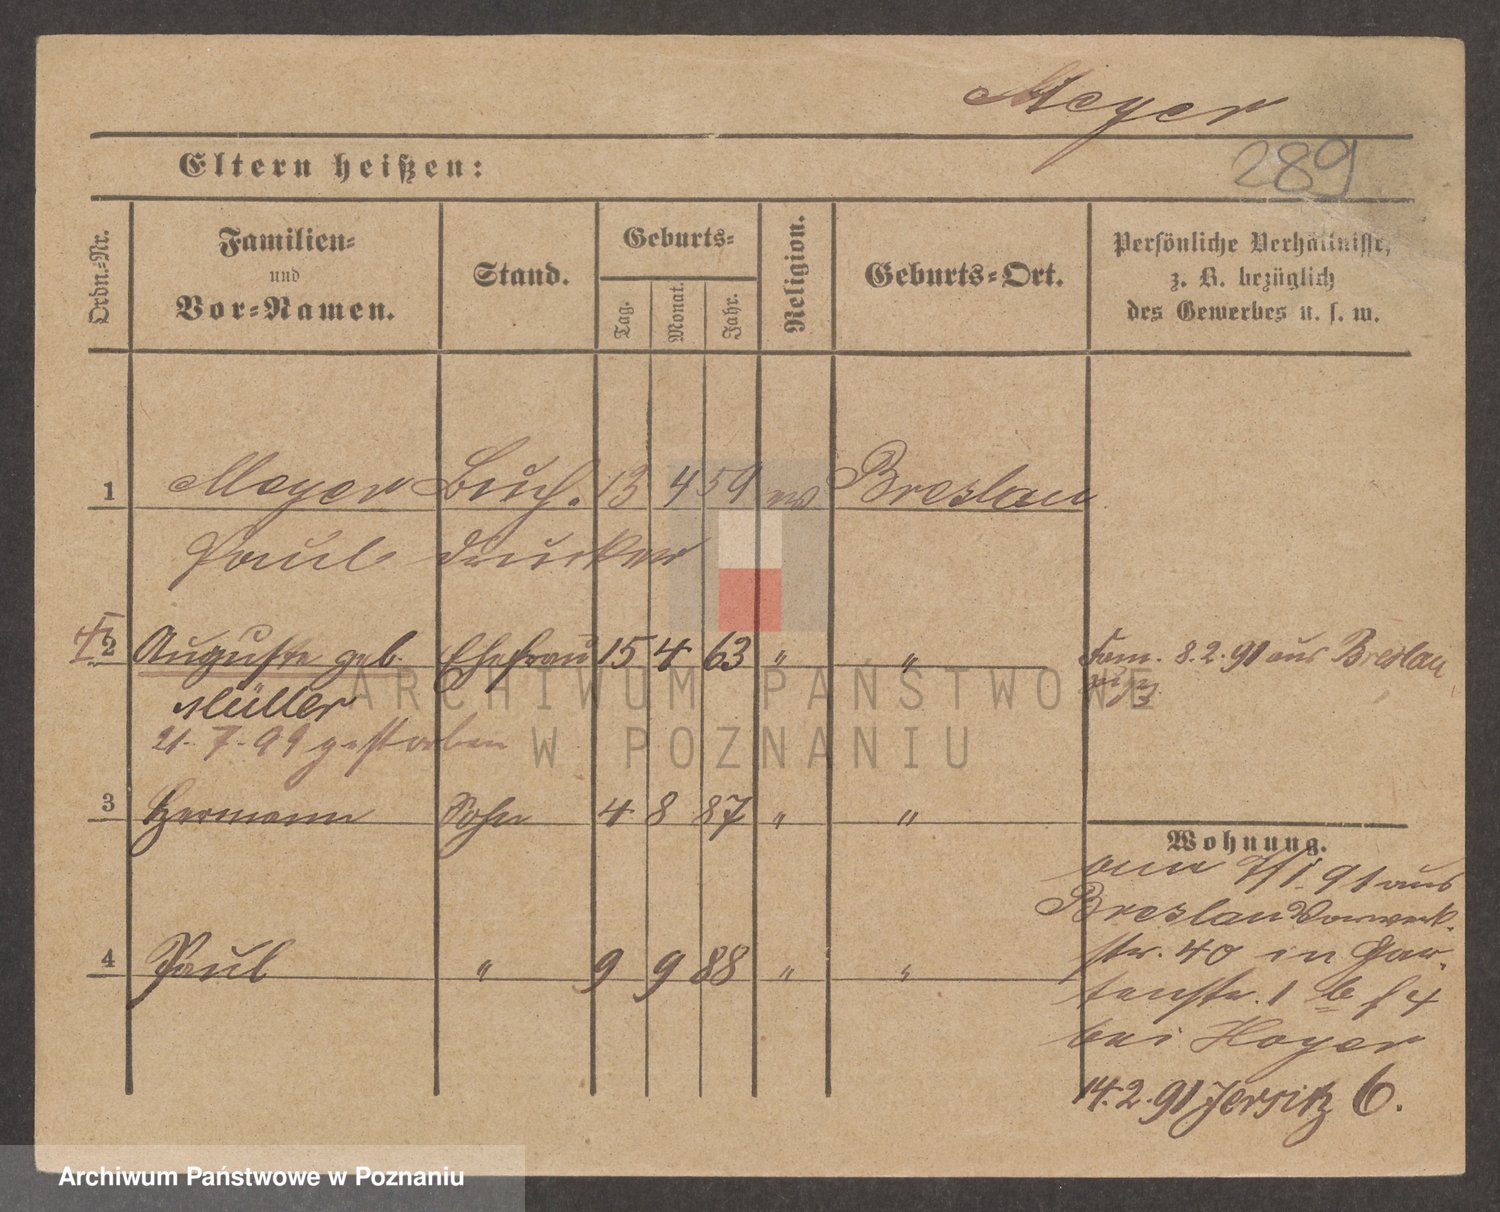 Meyer
289
Eltern heißen:
Ordn.-Nr.
Familien-
und
Vor-Namen.
Stand.
Geburts-
Tag.
Monat.
Jahr.
Religion.
Geburts-Ort.
Persönliche Verhältnisse,
z. B. bezüglich
des Gewerbes u. s. w.
1 Meyer Buch- 13 4 59 ev Breslau
Paul drucker
2 Auguste geb. Ehefrau 15 4 63 " " Fam. 8.2.91 aus Breslau
Müller
21.7.99 gestorben
3 Hermann Sohn 4 8 87 " "
4 Paul " 9 9 88 " "
Wohnung.
am 7/1.91 aus
Breslau Vorwerk-
str. 40 in Gar-
tenstr. 1 b
bei Hoyer
14.2.91 Jersitz 6.
ARCHIWUM PAŃSTWOWE
W POZNANIU
Archiwum Państwowe w Poznaniu